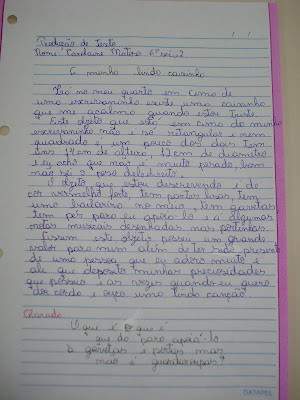 Produção de Texto
Nome: Matos 6ª série 2
O minha linda caixinha
Lá no meu quarto em cima de
uma escrivaninha existe uma caixinha
que me acalma quando estou triste.
Este objeto que está em cima da minha
escrivaninha não e só retangular e nem
quadrado e um pouco dos dois tem
uns 17 cm de altura, 13 cm de diametro
e eu acho que não é muito pesado, bem
não sei o peso dele direito.
O objeto que estou descrevendo é de
cor vermelho forte, tem portas lisas, tem
uma bailarina no meio, tem gavetas
tem pés para eu apoia-lo e a algumas
notas musicais desenhadas nas portinhas.
Enssim este objeto possui um grande
valor para mim alem de ter sido presente
de uma pessoa que eu adoro muito é
ali que deposito minhas preciosidades
que possuo e as vezes quando eu quero
dar corda e ouço uma linda canção.
Charada
O que é o que é
que da para apoia-lo
a gavetas e portas mas
não é guardaroupas?